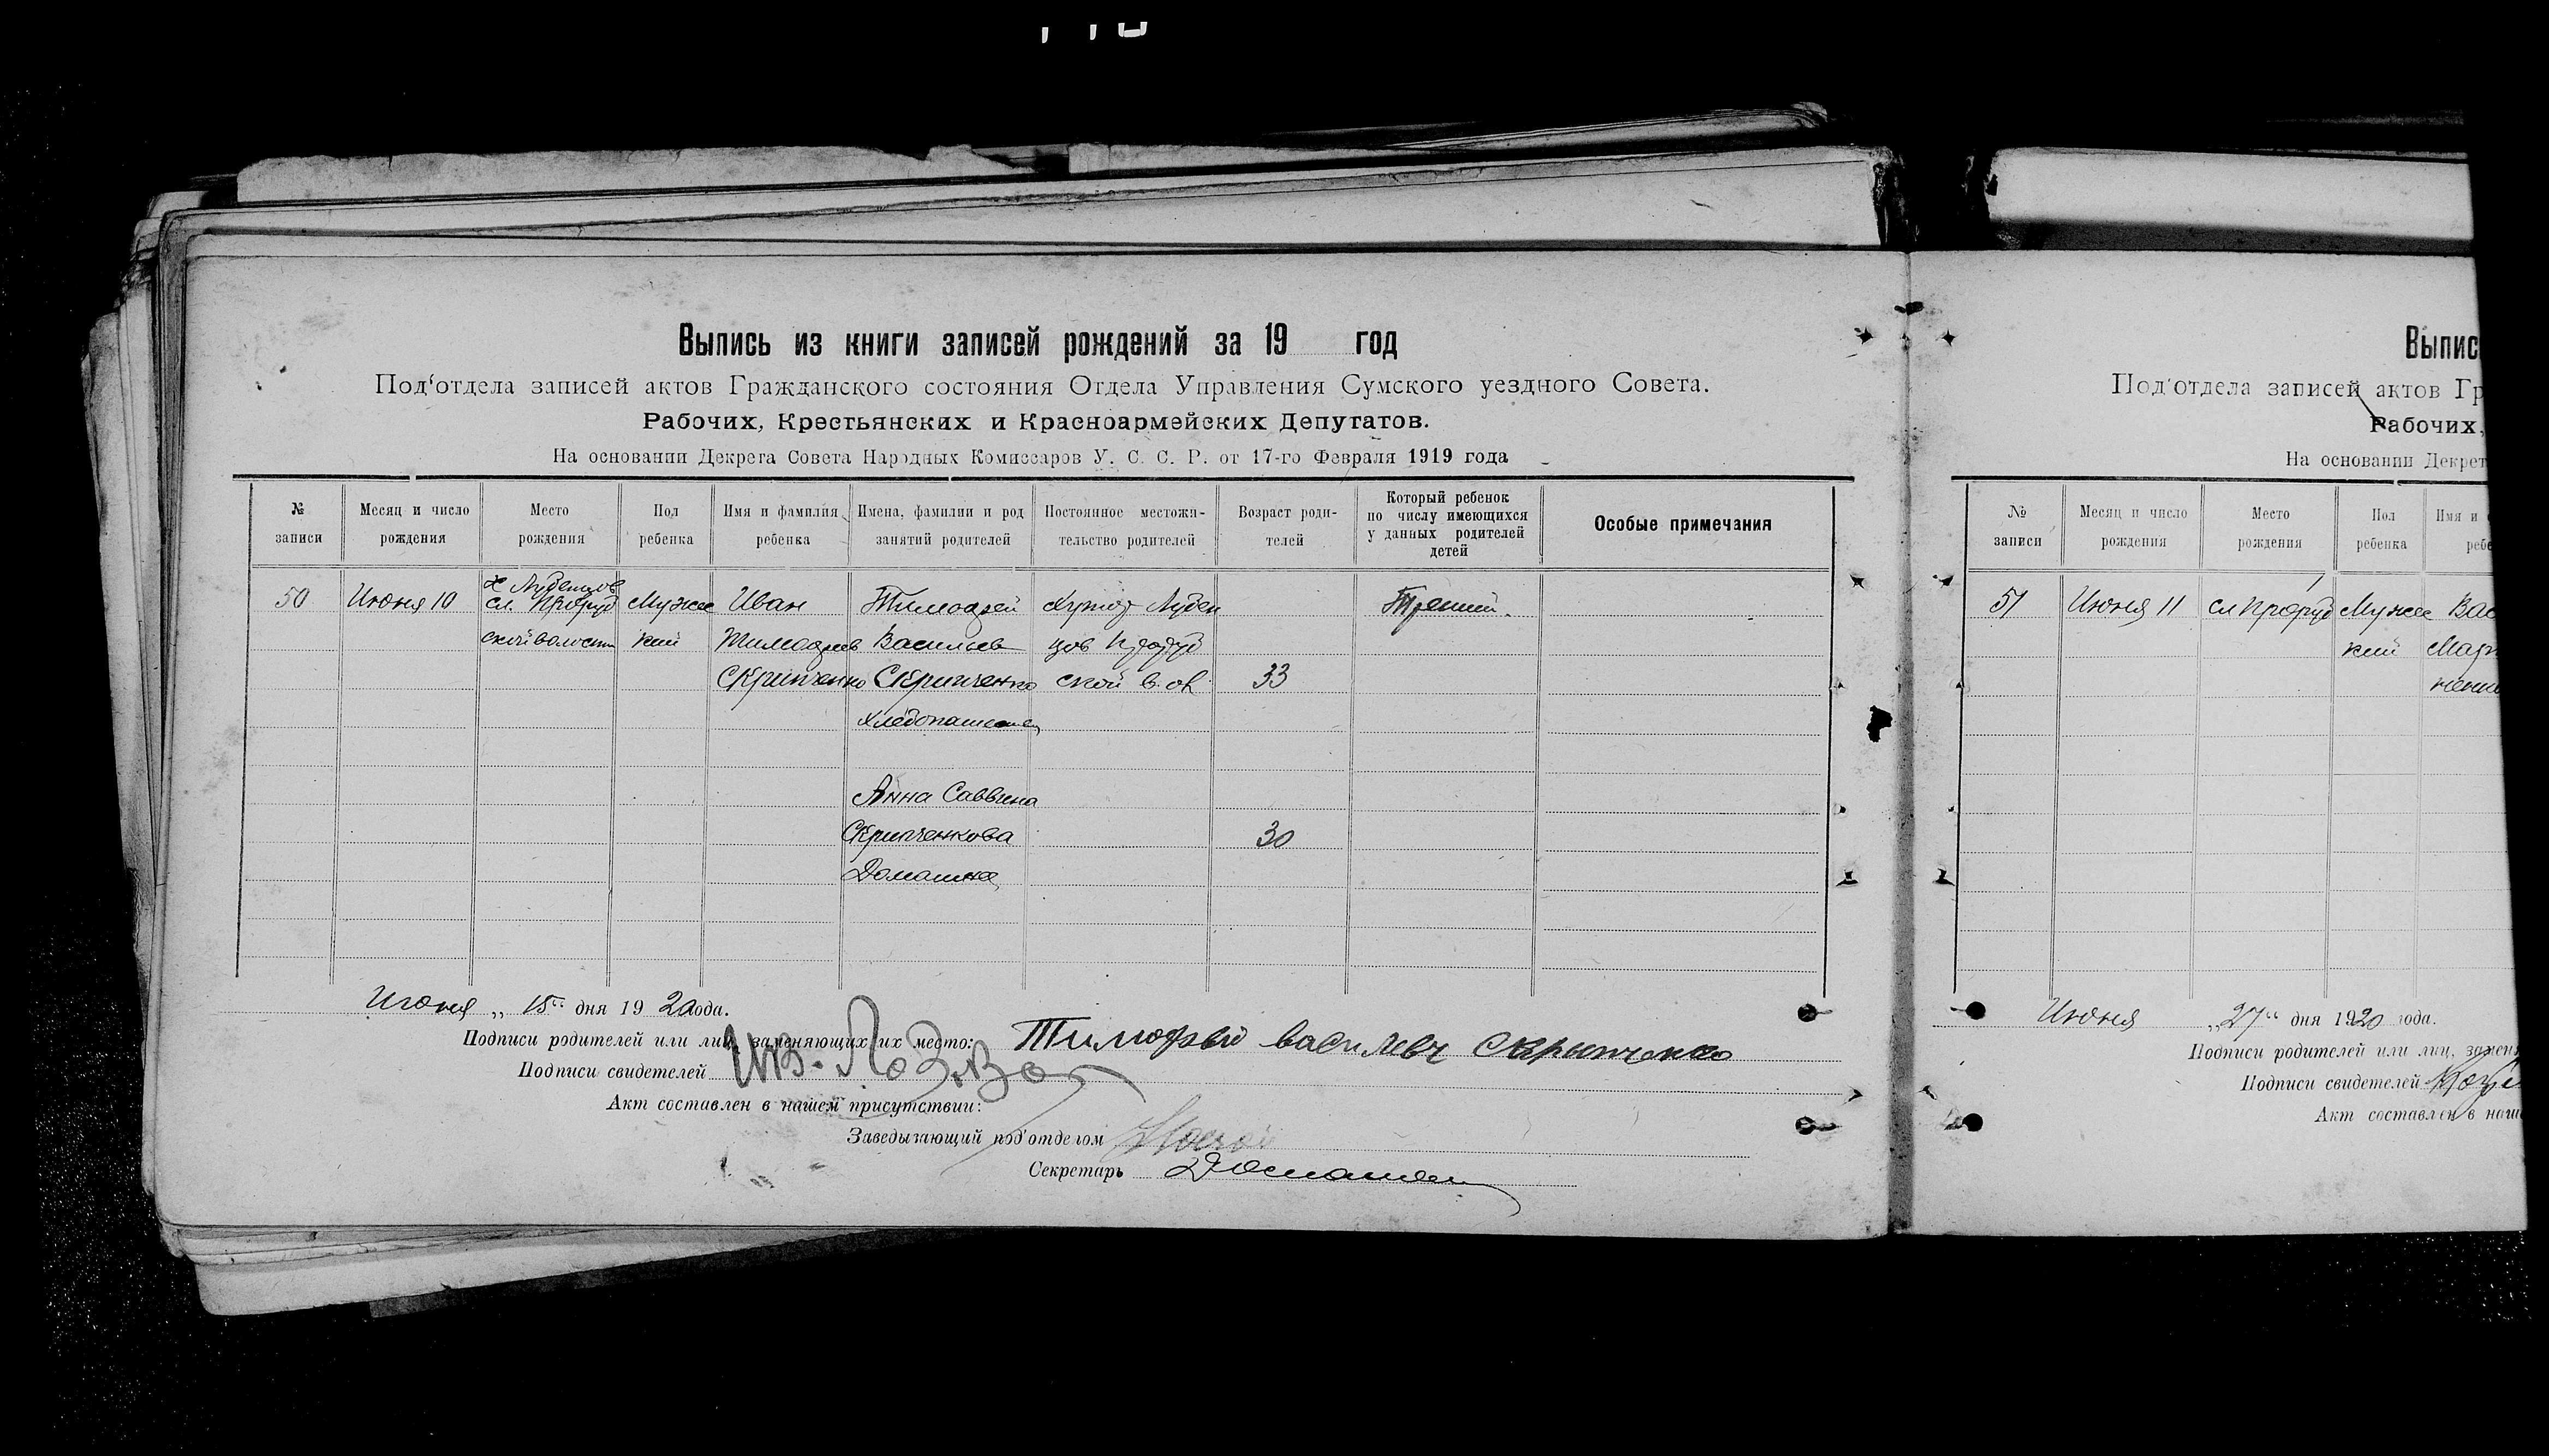 Выпись из книги записей рождений за 19 год
Под'отдела записей актов Гражданского состояния Отдела Управления Сумского уездного Совета.
Рабочих, Крестьянских и Красноармейских Депутатов.
На основании Декрета Совета Народных Комиссаров У. С. С. Р. от 17-го Февраля 1919 года
№ записи
Месяц и число рождения
Место рождения
Пол ребенка
Имя и фамилия ребенка
Имена, фамилии и род занятий родителей
Постоянное местожительство родителей
Возраст родителей
Который ребенок по числу имеющихся у данных родителей детей
Особые примечания
50 Июня 10 сл. Мужс Иван Тимофей Хутор Третий.
ской волости кий Тимофеев Васильев
Скрипченко Скрипченко ской вол. 33
хлебопашец
Анна Саввина
Скрипченкова 30
Домашнее
Июня „ 15 “ дня 1920 года.
Подписи родителей или лиц, заменяющих их место: Тимофей Скрыпченко
Подписи свидетелей Ив.
Акт составлен в нашем присутствии:
Заведывающий под'отделом
Секретарь
Выпис
Под'отдела записей актов Гр
Рабочих,
На основании Декрет
№ записи
Месяц и число рождения
Место рождения
Пол ребенка
Имя и
ребе
51 Июня 11 сл Мужс Вас
кий Мар
Июня „27“ дня 1920 года.
Подписи родителей или лиц, замен
Подписи свидетелей
Акт составлен в наш